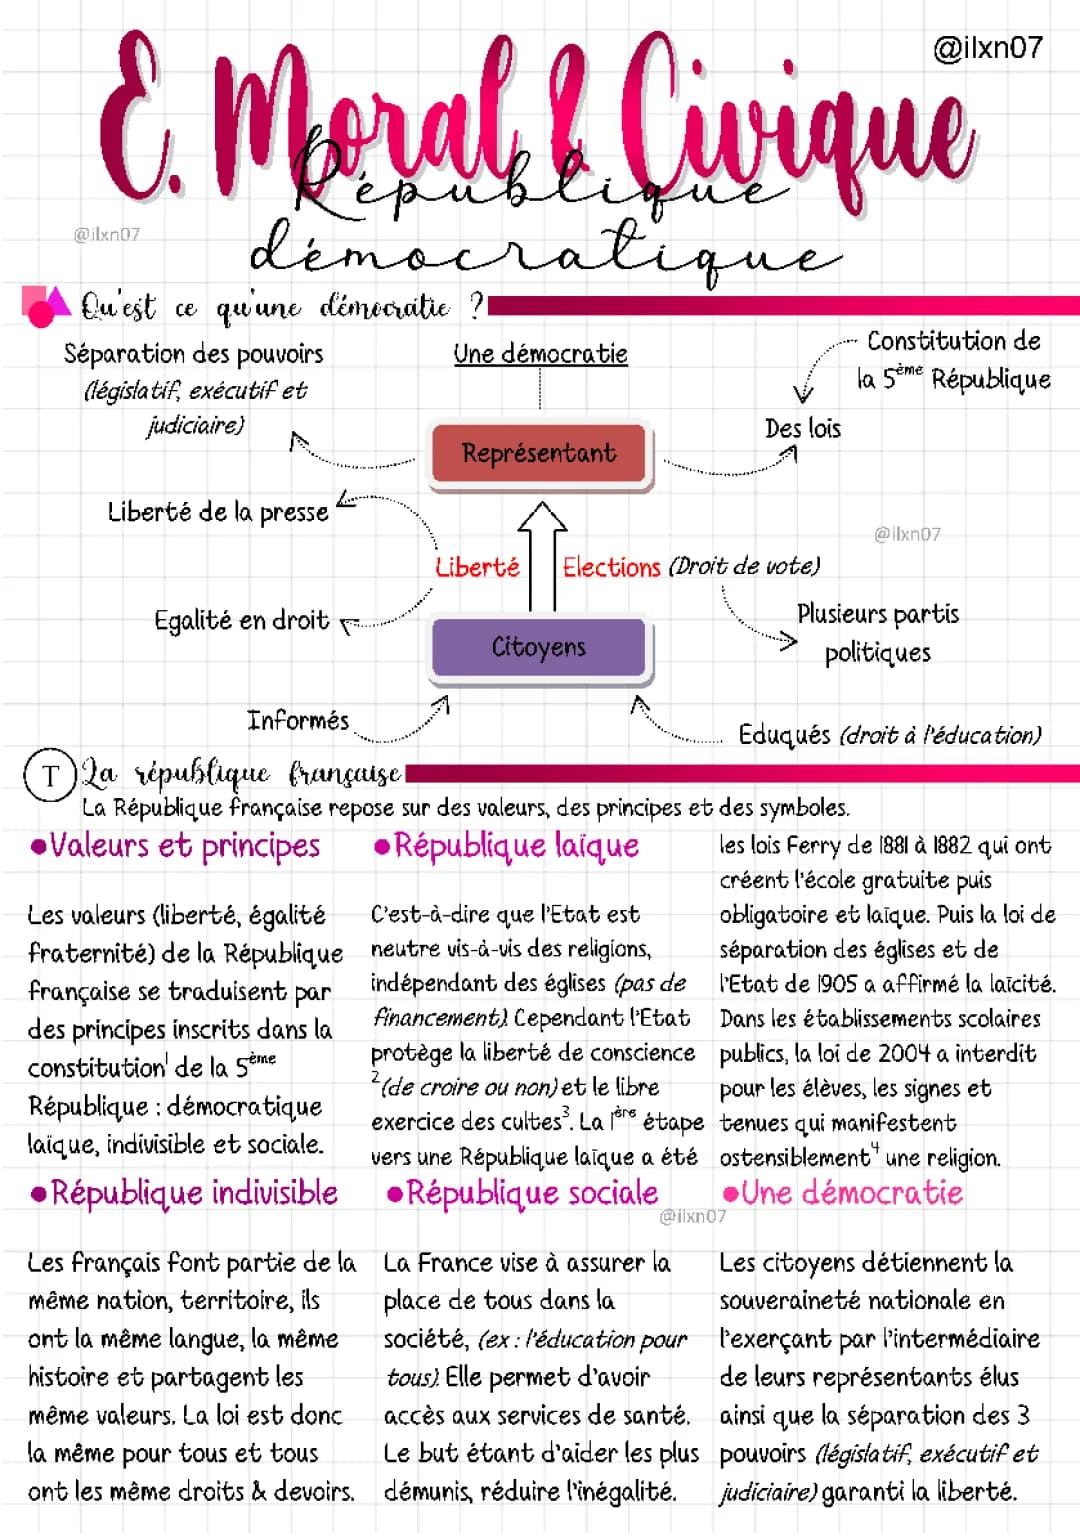 @ilxn07
E. Moral & Civique
République
démocratique
@ilxn07
Qu'est ce qu'une démocratie ?
Séparation des pouvoirs
(législatif, exécutif et
judiciaire)
Une démocratie
Constitution de
la 5ème République
Des lois
Représentant
Liberté de la presse
@ilxn07
Liberté
Elections (Droit de vote)
Egalité en droit
Plusieurs partis
politiques
Citoyens
Informés
Eduqués (droit à l'éducation)
T La république française
La République française repose sur des valeurs, des principes et des symboles.
•Valeurs et principes
Les valeurs (liberté, égalité
fraternité) de la République
française se traduisent par
des principes inscrits dans la
constitution¹ de la 5ème
République : démocratique
laïque, indivisible et sociale.
•République laïque
C'est-à-dire que l'Etat est
neutre vis-à-vis des religions,
indépendant des églises (pas de
financement). Cependant l'Etat
protège la liberté de conscience
²(de croire ou non) et le libre
exercice des cultes³. La 1ère étape
vers une République laïque a été
les lois Ferry de 1881 à 1882 qui ont
créent l'école gratuite puis
obligatoire et laïque. Puis la loi de
séparation des églises et de
l'Etat de 1905 a affirmé la laïcité.
Dans les établissements scolaires
publics, la loi de 2004 a interdit
pour les élèves, les signes et
tenues qui manifestent
ostensiblement⁴ une religion.
•République indivisible
Les français font partie de la
même nation, territoire, ils
ont la même langue, la même
histoire et partagent les
même valeurs. La loi est donc
la même pour tous et tous
ont les même droits & devoirs.
•République sociale
@ilxn07
La France vise à assurer la
place de tous dans la
société, (ex : l'éducation pour
tous). Elle permet d'avoir
accès aux services de santé.
Le but étant d'aider les plus
démunis, réduire l'inégalité.
•Une démocratie
Les citoyens détiennent la
souveraineté nationale en
l'exerçant par l'intermédiaire
de leurs représentants élus
ainsi que la séparation des 3
pouvoirs (législatif, exécutif et
judiciaire) garanti la liberté.